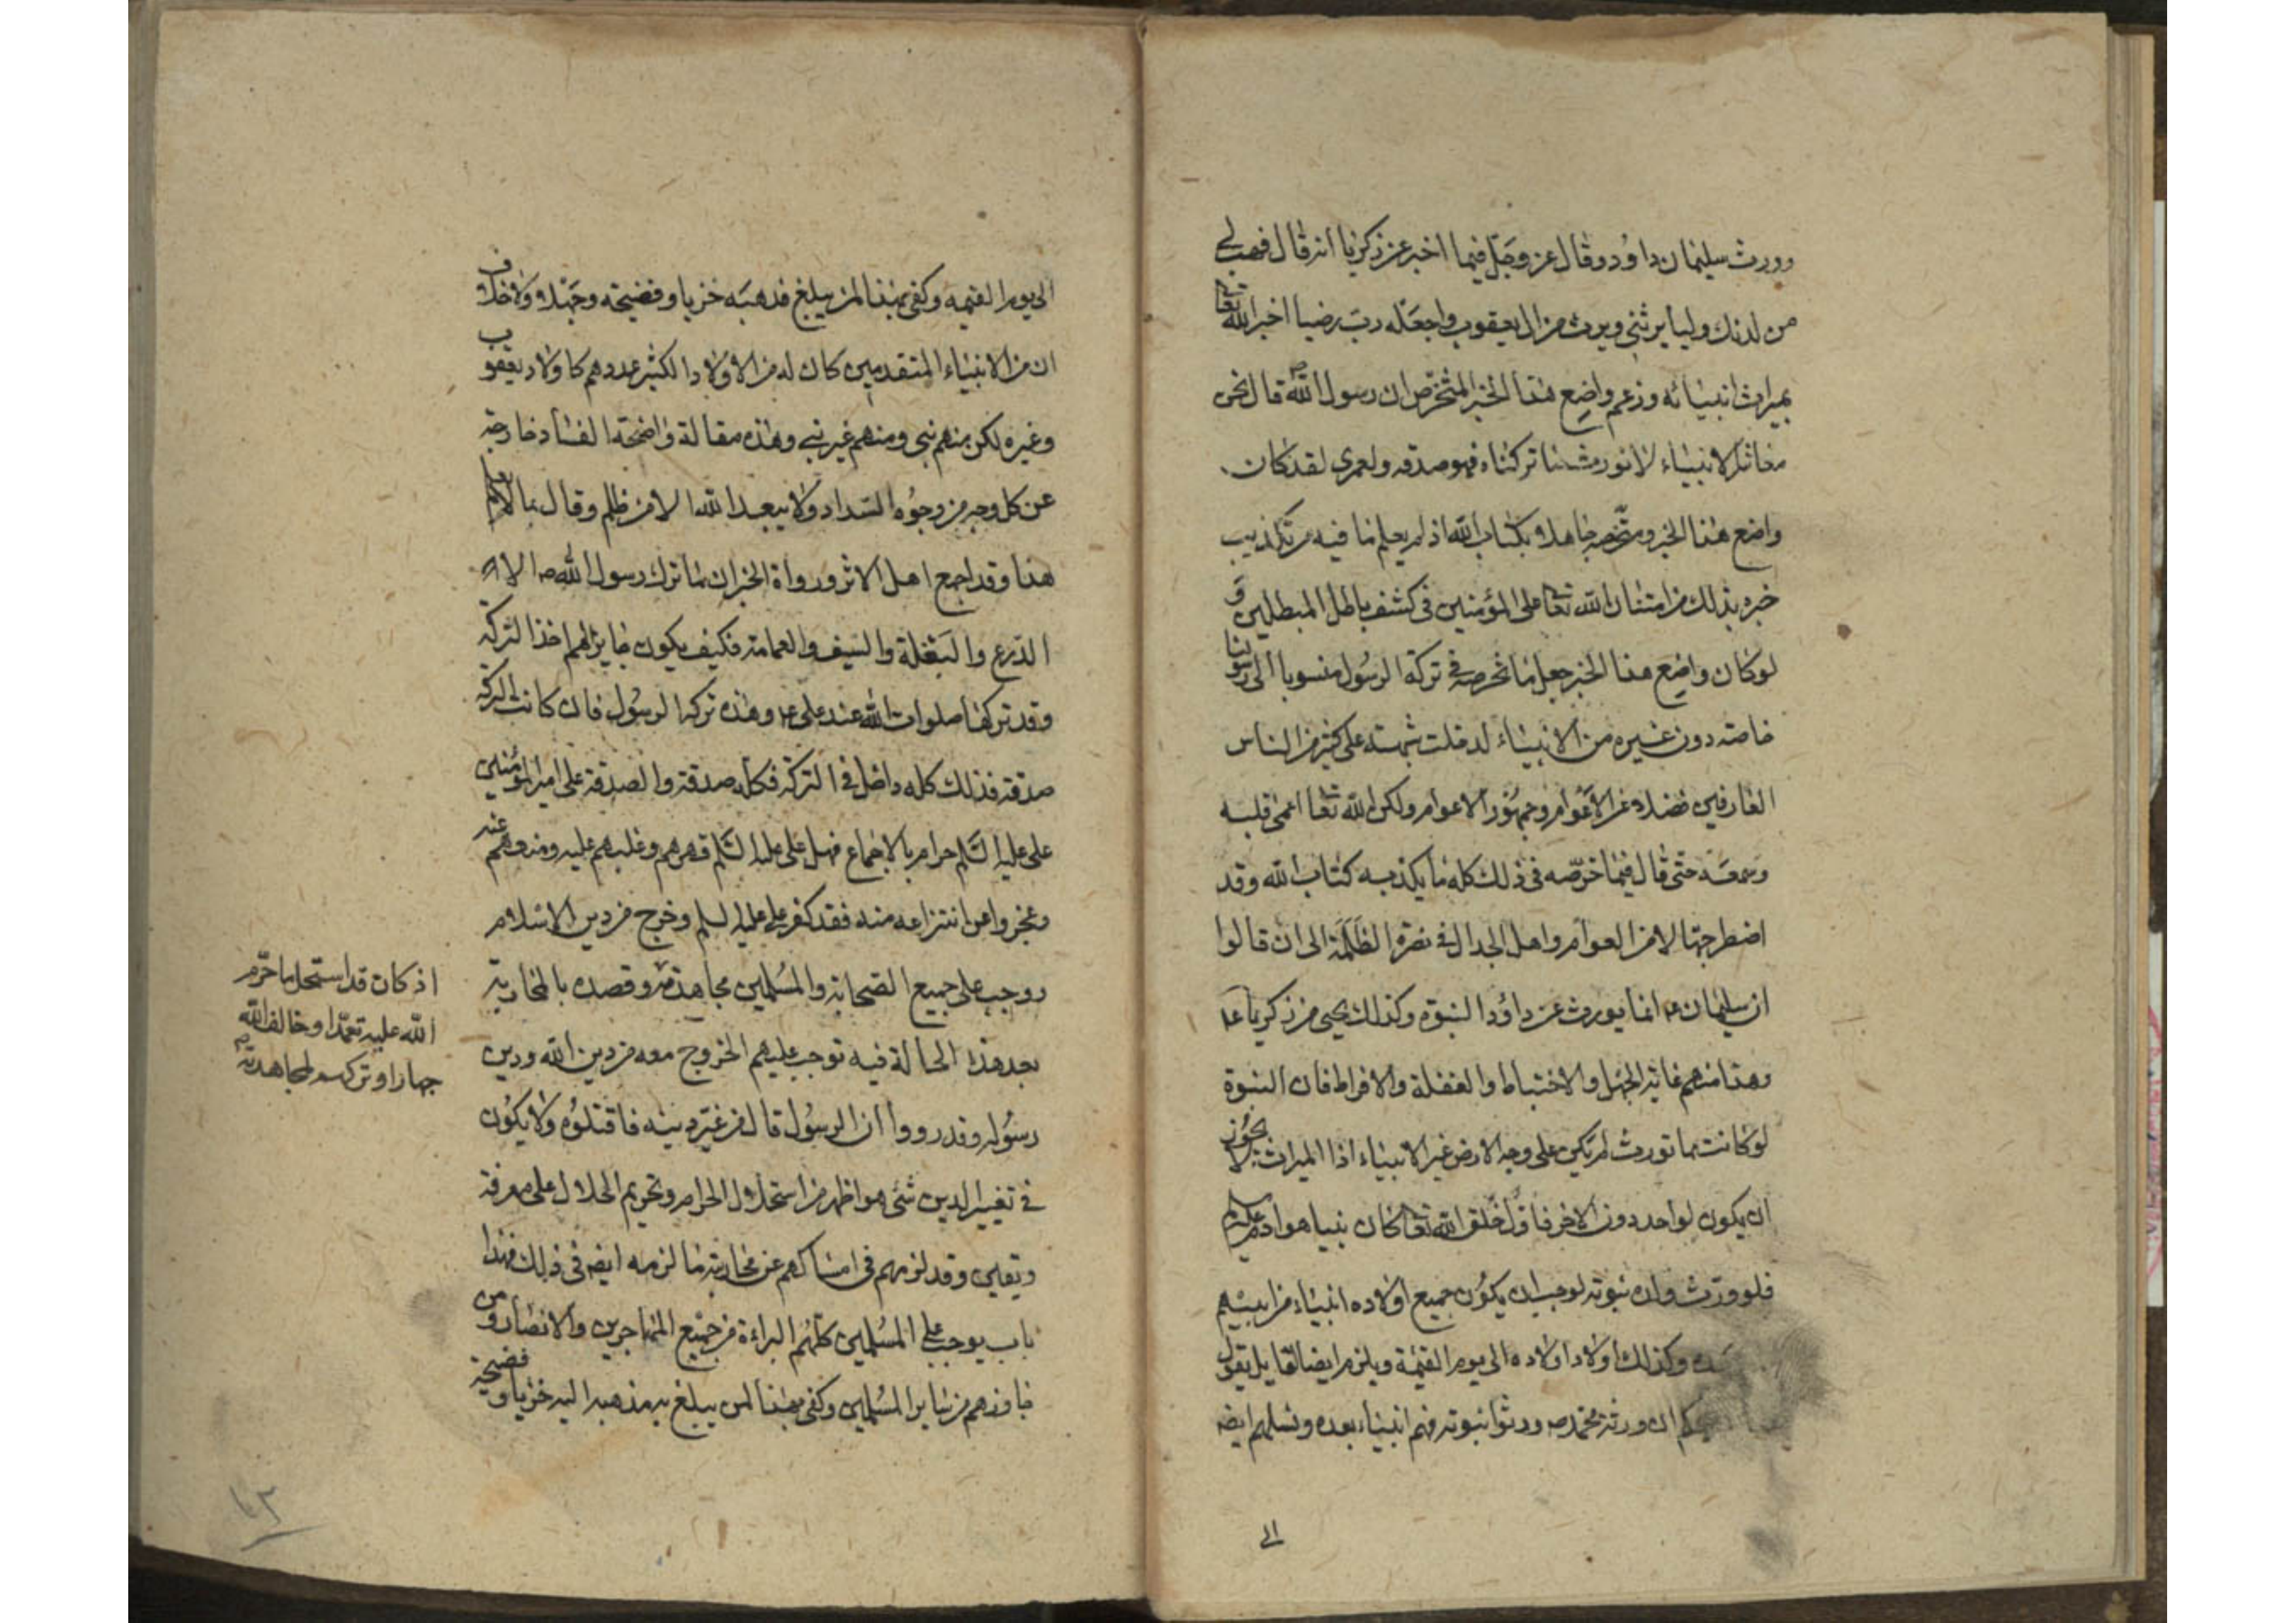 وورث سليمان داود وقال عز وجل فيما اخبر عن زكريا انه قال فهب لي
من لدنك وليا يرثني ويرث من ال يعقوب واجعله رب رضيا اخبر الله تعا
بميراث انبيائه وزعم واضع هذا الخبر المتخرص ان رسول الله ص قال نحن
معاشر الانبياء لا نورث ما تركناه فهو صدقه ولعمرى لقد كان
واضع هذا الخبر ومتخرصه جاهلا بكتاب الله اذ لم يعلم ما فيه من تكذيب
خبره بذلك من امتنان الله تعا على المؤمنين فى كشف باطل المبطلين و
لو كان واضع هذا الخبر جعل ما تخرصه فى تركة الرسول منسوبا الى رسولنا
خاصة دون غيره من الانبياء لدخلت شبهته على كثير من الناس
العارفين فضلا عن الاغوام وجمهور الاعوام ولكن الله تعا اعمى قلبه
وسمعه حتى قال فيما خرصه فى ذلك كله ما يكذبه كتاب الله وقد
اضطر جهالا من العوام واهل الجدال فى نصرة الظلمة الى ان قالوا
ان سليمان ع انما يورث عن داؤد النبوة وكذلك يحيى من زكريا ع
وهذا منهم غاية الجهل والاختباط والغفلة والافراط فان النبوة
لو كانت مما تورث لم تكن على وجه الارض غير الانبياء اذا الميراث لا يجوز
ان يكون لواحد دون الاخر فاول خلق الله تعا كان نبيا هو ادم عليه السلم
فلو ورث ولده نبوته لوجب ان يكون جميع اولاده انبياء من ابيهم
وكذلك اولاد اولاده الى يوم القيمة ويلزم ايضا لقايل يقول
ان ورثة محمد ص ورثوا نبوته فهم انبياء بعده ونسلهم ايضه
الى
الى يوم القيمه وكفى بهذا لمن يبلغ مذهبه خزيا وفضيحة وجهلا ولا خلاف
ان من الانبياء المتقدمين كان له من الاولاد الكثير عددهم كاولاد يعقوب
وغيره لكن منهم نبى ومنهم غير نبى وهذه مقالة واضحة الفساد خارجة
عن كل وجه من وجوه السداد ولا يبعد الله الا من ظلم وقال بما لا يعلم
هذا وقد اجمع اهل الاثر ورواة الخبر ان مما ترك رسول الله ص
الدرع والبغلة والسيف والعمامة فكيف يكون جايز لهم اخذ التركة
وقد تركها صلوات الله عند على ع وهذه تركه الرسول فان كانت التركة
صدقة فذلك كله داخل فى التركه فكله صدقة والصدقة على امير المؤمنين
على عليه السلم حرام بالاجماع فهل على عليه السلم قهرهم وغلبهم عليه ومنعوهم عنه
وعجزوا عن انتزاعه منه فقد كفر على عليه السلم وخرج من دين الاسلام
ووجب على جميع الصحابة والمسلمين مجاهدته وقصده بالمحاربة
بعد هذه الحالة فيه توجب عليهم الخروج معه من دين الله ودين
رسوله وقد رووا ان الرسول قال من غير دينه فاقتلوه ولا يكون
فى تغيير الدين شئ هو اظهر من استحلال الحرام وتحريم الحلال على معرفة
ويقين وقد لزمهم فى امساكهم عن محاربته ما لزمه ايضه فى ذلك فهذا
باب يوجب على المسلمين كلهم البراءة من جميع المهاجرين والانصار ومن
جاورهم من ساير المسلمين وكفى بهذا لمن يبلغ به مذهبه اليه خزيا وفضيحة
اذ كان قد استحل ما حرم
الله عليه تعمدا وخالف الله
جهارا وتركهم لمجاهدته